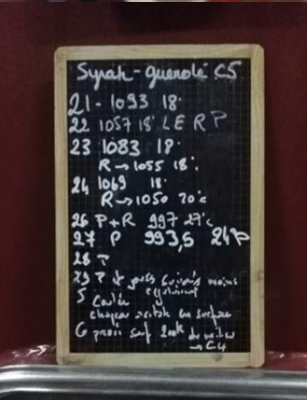 Syrah - guenolé C5
21 - 1093 18°
22 1057 18° L E R P
23 1083 18°
R → 1055 18°
24 1069 18°
R → 1050 20°c
26 P + R 997 27°c
27 P 993,5 24°
28 ?
29 ?
5 Coulée
chapeau en surface
6 sauf du milieu
→ C4